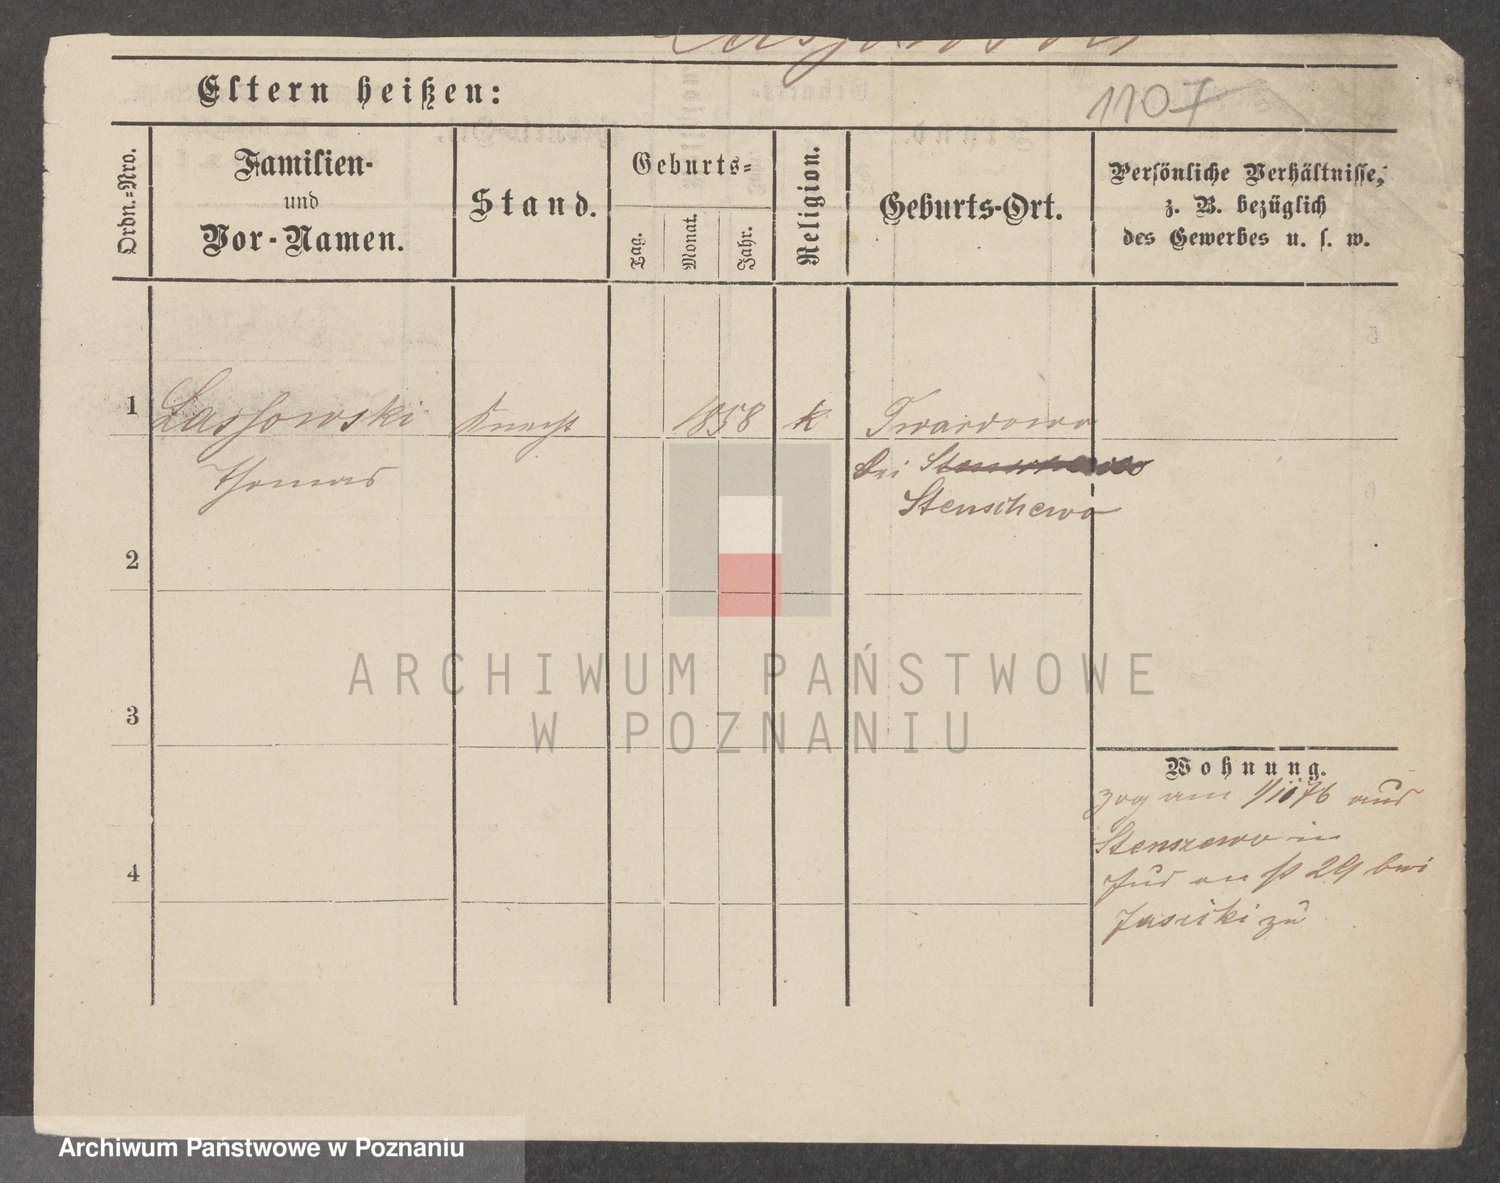 Eltern heißen:
1107
Ordn.-Nro.
Familien-
und
Vor-Namen.
Stand.
Geburts-
Tag.
Monat.
Jahr.
Religion.
Geburts-Ort.
Persönliche Verhältnisse,
z. B. bezüglich
des Gewerbes u. s. w.
1 Lassowski Knecht 1858 k Twardowo
Thomas
bei
Stenschewo
2
3
4
Wohnung.
zog am 1/10 76 aus
Stenszewo in
29 bei
zu
ARCHIWUM PAŃSTWOWE
W POZNANIU
Archiwum Państwowe w Poznaniu